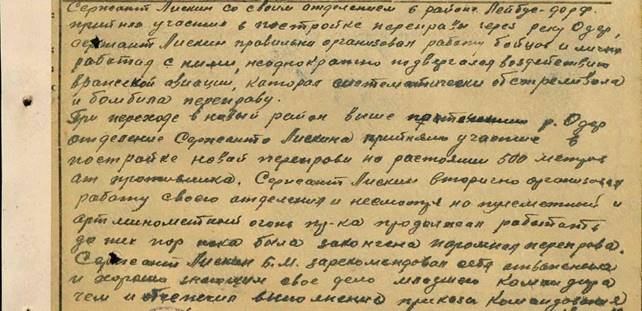 Сержант Лискин со своим отделением в районе Лейбус-дорф.
принял участие в постройке переправы через реку Одер,
сержант Лискин правильно организовал работу бойцов и лично
работал с ними, неоднократно подвергался воздействию
вражеской авиации, которая систематически обстреливала
и бомбила переправу.
При переходе в новый район выше по течению р. Одер
отделение Сержанта Лискина приняло участие в
постройке новой переправы на расстоянии 500 метров
от противника. Сержант Лискин вторично организовал
работу своего отделения и несмотря на пулеметный и
арт. минометный огонь пр-ка продолжал работать
до тех пор пока была закончена паромная переправа.
Сержант Лискин Б.М. зарекомендовал себя отважным
и хорошо знающим свое дело младшего командира
чем и обеспечил выполнение приказа командования